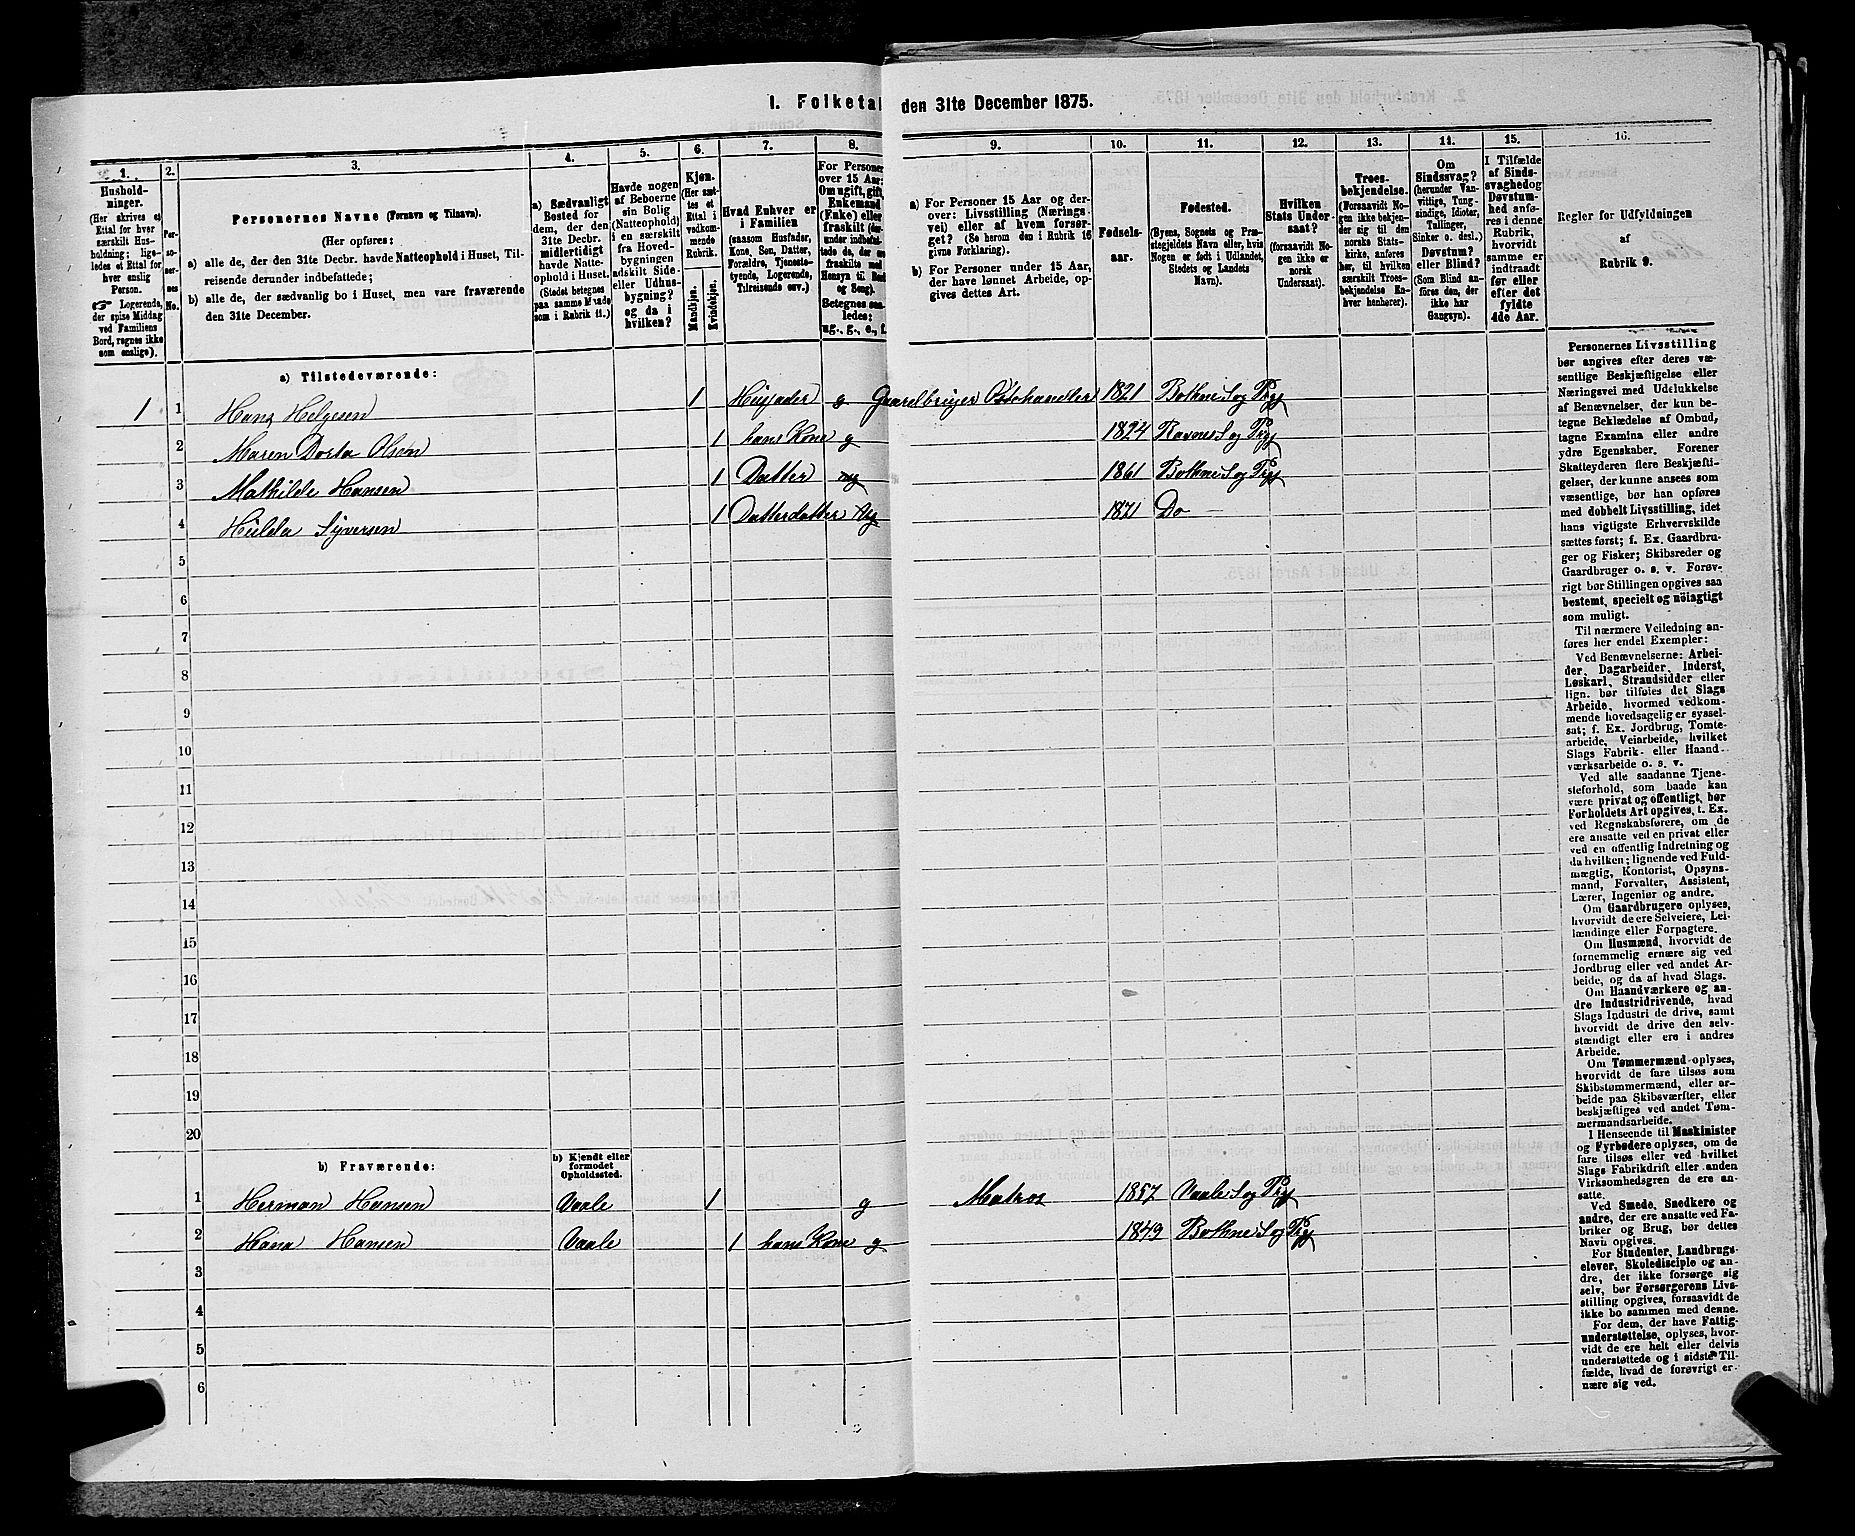 I. Folketal den 31te December 1875.
1.
Hushold-
ninger.
(Her skrives et
Ettal for hver
særskilt Hus-
holdning; lige-
ledes et Ettal for
hver enslig
Person.
☞ Logerende,
der spise Middag
ved Familiens
Bord, regnes ikke
som enslige).
2.
Per-
so-
ner-
nes
No.
3.
Personernes Navne (Fornavn og Tilnavn).
(Her opføres:
a) alle de, der den 31te Decbr. havde Natteophold i Huset, Til-
reisende derunder indbefattede;
b) alle de, der sædvanlig bo i Huset, men vare fraværende
den 31te December.
4.
a) Sædvanligt
Bosted for
dem, der den
31te Decbr.
midlertidigt
havde Natte-
ophold i Huset.
(Stedet betegnes
paa samme Maade
som i Rubrik 11.)
5.
Havde nogen
af Beboerne
sin Bolig
(Natteophold)
i en særskilt
fra Hoved-
bygningen
adskilt Side-
eller Udhus-
bygning?
og da i
hvilken?
6.
Kjøn.
(Her sæt-
tes et
Ettal i
vedkom-
mende
Rubrik.
Mandkjøn.
Kvindekjøn.
7.
Hvad Enhver er
i Familien
(saasom Husfader,
Kone, Søn, Datter,
Forældre, Tjeneste-
tyende, Logerende,
Tilreisende osv.)
8.
For Personer
over 15 Aar;
Om ugift, gift,
Enkemand
(Enke) eller
fraskilt (der-
under indbefat-
tede de, der ere
fraskilte med
Hensyn til Bord
og Seng).
Betegnes saa-
ledes:
ug., g., e., f.
9.
a) For Personer 15 Aar og der-
over: Livsstilling (Nærings-
vei) eller af hvem forsør-
get? (Se herom den i Rubrik 16
givne Forklaring).
b) For Personer under 15 Aar,
der have lønnet Arbeide, op-
gives dettes Art.
10.
Fødsels-
aar.
11.
Fødested.
(Byens, Sognets og Præ-
stegjeldets Navn eller, hvis
Nogen er født i Udlandet,
Stedets og Landets
Navn).
12.
Hvilken
Stats Under-
saat?
(forsaavidt No-
gen ikke er
norsk
Undersaat).
13.
Troes-
bekjendelse.
(Forsaavidt No-
gen ikke bekjen-
der sig til den
norske Stats-
kirke, anføres
her, til hvilken
særskilt Troes-
bekjendelse En-
hver henhører).
14.
Om
Sindssvag?
(herunder Van-
vittige, Tung-
sindige, Idioter,
Tallinger,
Sinker o. desl.)
Døvstum?
eller Blind?
(Som Blind an-
føres den, der
ikke har
Gangsyn).
15.
I Tilfælde
af Sinds-
svaghed og
Døvstum-
hed anfø-
res i denne
Rubrik,
hvorvidt
samme er
indtraadt
før eller
efter det
fyldte
4de Aar.
16.
Regler for Udfyldningen
af
Rubrik 9.
a) Tilstedeværende:
1 1 Hans Helgesen 1 Husfader g Gaardbruger Ostehandler 1821 Bothne S og Prgj
2 Maren Dorta Olsen 1 hans Kone g 1824 Ravnes S og Prgj
3 Mathilde Hansen 1 Datter ug 1861 Bothne S og Prgj
4 Hulda Syversen 1 Datterdatter Ug 1871 Do
5
6
7
8
9
10
11
12
13
14
15
16
17
18
19
20
b) Fraværende:
b) Kjendt eller
formodet
Opholdssted.
1 Herman Hansen Vaale 1 g Matros 1857 Vaale S og Prgj
2 Hana Hansen Vaale 1 hans Kone g 1849 Bothne S og Prgj
3
4
5
6
Personernes Livsstilling
bør angives efter deres væ-
sentlige Beskjæftigelse eller
Næringsvei med Udelukkelse
af Benævnelser, der kun be-
tegne Beklædelse af Ombud,
tagne Examina eller andre
ydre Egenskaber. Forener
Skatteyderen flere Beskjæfti-
gelser, der kunne ansees som
væsentlige, bør han opføres
med dobbelt Livsstilling, idet
hans vigtigste Erhvervskilde
sættes først; f. Ex. Gaardbru-
ger og Fisker; Skibsreder og
Gaardbruger o. s. v. Forøv-
rigt bør Stillingen opgives saa
bestemt, specielt og nøiagtigt
som muligt.
Til nærmere Veiledning an-
føres her endel Exempler:
Ved Benævnelserne: Arbei-
der, Dagarbeider, Inderst,
Løskarl, Strandsidder eller
lign. bør tilføies det Slags
Arbeide, hvormed vedkom-
mende hovedsagelig er syssel-
sat; f. Ex. Jordbrug, Tomte-
arbeide, Veiarbeide, hvilket
Slags Fabrik- eller Haand-
værksarbeide o. s. v.
Ved alle saadanne Tjene-
steforhold, som baade kan
være privat og offentligt, bør
Forholdets Art opgives, t. Ex.
ved Regnskabsførere, om de
ere ansatte ved en privat eller
ved en offentlig Indretning og
da hvilken; lignende ved Fuld-
mægtig, Kontorist, Opsyns-
mand, Forvalter, Assistent,
Lærer, Ingeniør og andre.
Om Gaardbrugere oplyses,
hvorvidt de ere Selveiere, Lei-
lændinge eller Forpagtere.
Om Husmænd, hvorvidt de
fornemmelig ernære sig ved
Jordbrug eller ved andet Ar-
beide, og da af hvad Slags.
Om Haandværkere og an-
dre Industridrivende, hvad
Slags Industri de drive, samt
hvorvidt de drive den selv-
stændigt eller ere i andres
Arbeide.
Om Tømmermænd oplyses,
hvorvidt de fare tilsøs som
Skibstømmermænd, eller ar-
beide paa Skibsværfter, eller
beskjæftiges ved andet Tøm-
mermandsarbeide.
I Henseende til Maskinister
og Fyrbødere oplyses, om de
fare tilsøs eller ved hvilket
Slags Fabrikdrift eller anden
Virksomhedsgren de ere an-
satte.
Ved Smede, Snedkere og
andre, der ere ansatte ved Fa-
briker og Brug, bør dettes
Navn opgives.
For Studenter, Landbrugs-
elever, Skoledisciple og an-
dre, der ikke forsørge sig
selv, bør Forsørgerens Livs-
stilling opgives, forsaavidt de
ikke bo sammen med denne.
For dem, der have Fattig-
understøttelse, oplyses, hvor-
vidt de ere helt eller delvis
understøttede og i sidste Til-
fælde, hvad de forøvrigt er-
nære sig ved.